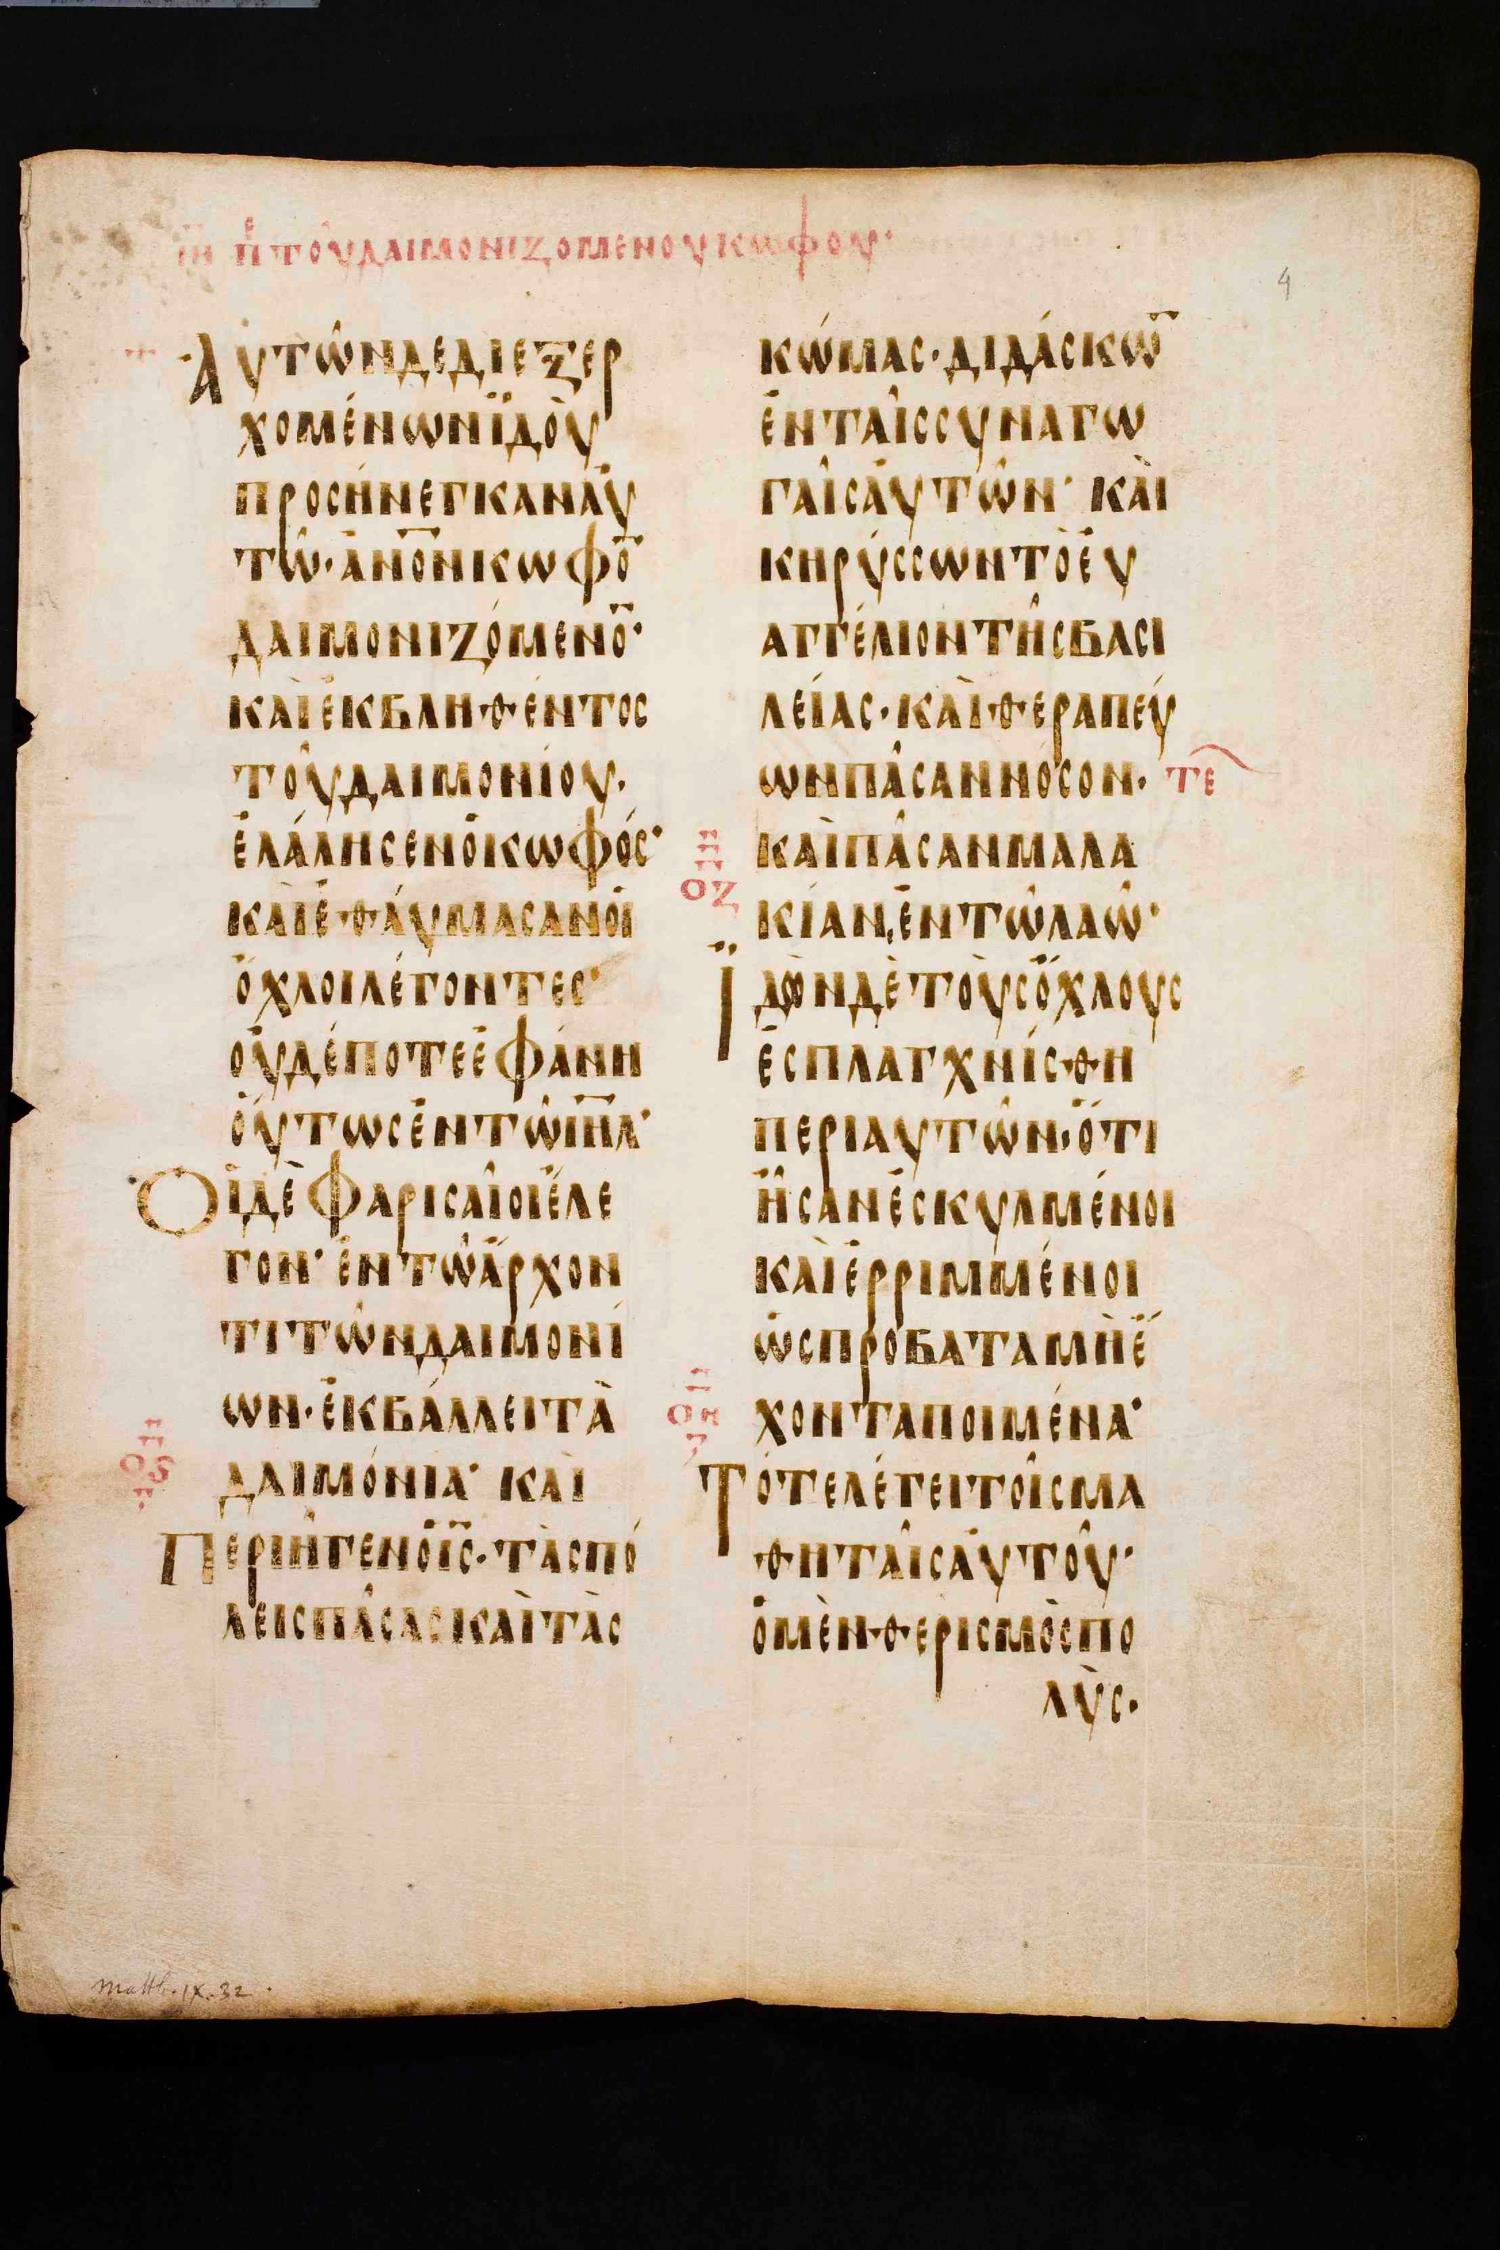 ΙΗ ΠΕ ΤΟΥ ΔΑΙΜΟΝΙΖΟΜΕΝΟΥ ΚΩΦΟΥ·
4
ΑΥΤῶΝΔΕΔΙΕΞΕΡ
ΧΟΜΈΝΩΝΪΔΟῪ
ΠΡΟΣΉΝΕΓΚΑΝΑΥ
Τῶ·ἈΝ̅Ο̅ΝΚΩΦΟ̅
ΔΑΙΜΟΝΙΖΌΜΕΝΟ̅·
ΚΑῚἘΚΒΛΗΘΈΝΤΟΣ
ΤΟῦΔΑΙΜΟΝΊΟΥ·
ἘΛΆΛΗΣΕΝὉΚΩΦΌΣ·
ΚΑῚἘΘΑΎΜΑΣΑΝΟἹ
ὌΧΛΟΙΛΈΓΟΝΤΕΣ·
ΟΥΔΈΠΟΤΕἘΦΆΝΗ
ΟὝΤΩΣἘΝΤῶΙ̅Η̅Λ̅·
ΟἹΔῈΦΑΡΙΣΑῖΟΙἜΛΕ
ΓΟΝ·ἘΝΤῶἌΡΧΟΝ
ΤΙΤῶΝΔΑΙΜΟΝΊ
ΩΝ·ἘΚΒΆΛΛΕΙΤᾺ
ΔΑΙΜΌΝΙΑ· ΚΑῚ
ΟϚ
ΠΕΡΙῆΓΕΝὉΙ̅Σ̅·ΤᾺΣΠΌ
ΛΕΙΣΠΆΣΑΣΚΑῚΤᾺΣ
ΚΏΜΑΣ·ΔΙΔΆΣΚΩ̅
ἘΝΤΑῖΣΣΥΝΑΓΩ
ΓΑῖΣΑΥΤῶΝ· ΚΑῚ
ΚΗΡΎΣΣΩΝΤῸΕΥ
ΑΓΓΈΛΙΟΝΤῆΣΒΑΣΙ
ΛΕΊΑΣ·ΚΑῚΘΕΡΑΠΕΎ
ΩΝΠᾶΣΑΝΝΌΣΟΝ· ΤΕ
ΚΑῚΠᾶΣΑΝΜΑΛΑ
ΟΖ
ΚΊΑΝ,ἘΝΤῶΛΑῶ·
ΪΔῺΝΔῈΤΟῪΣὌΧΛΟΥΣ
ἘΣΠΛΑΓΧΝΊΣΘΗ
ΠΕΡΙΑΥΤῶΝ·ὍΤΙ
ἮΣΑΝἘΣΚΥΛΜΈΝΟΙ
ΚΑῚἘΡΡΙΜΜΈΝΟΙ
ὩΣΠΡΌΒΑΤΑΜῊἜ
ΧΟΝΤΑΠΟΙΜΈΝΑ·
ΟΗ
ΤΌΤΕΛΈΓΕΙΤΟῖΣΜΑ
ΘΗΤΑῖΣΑΥΤΟῦ·
ὉΜῈΝΘΕΡΙΣΜῸΣΠΟ
ΛῪΣ·
Matth. IX. 32.